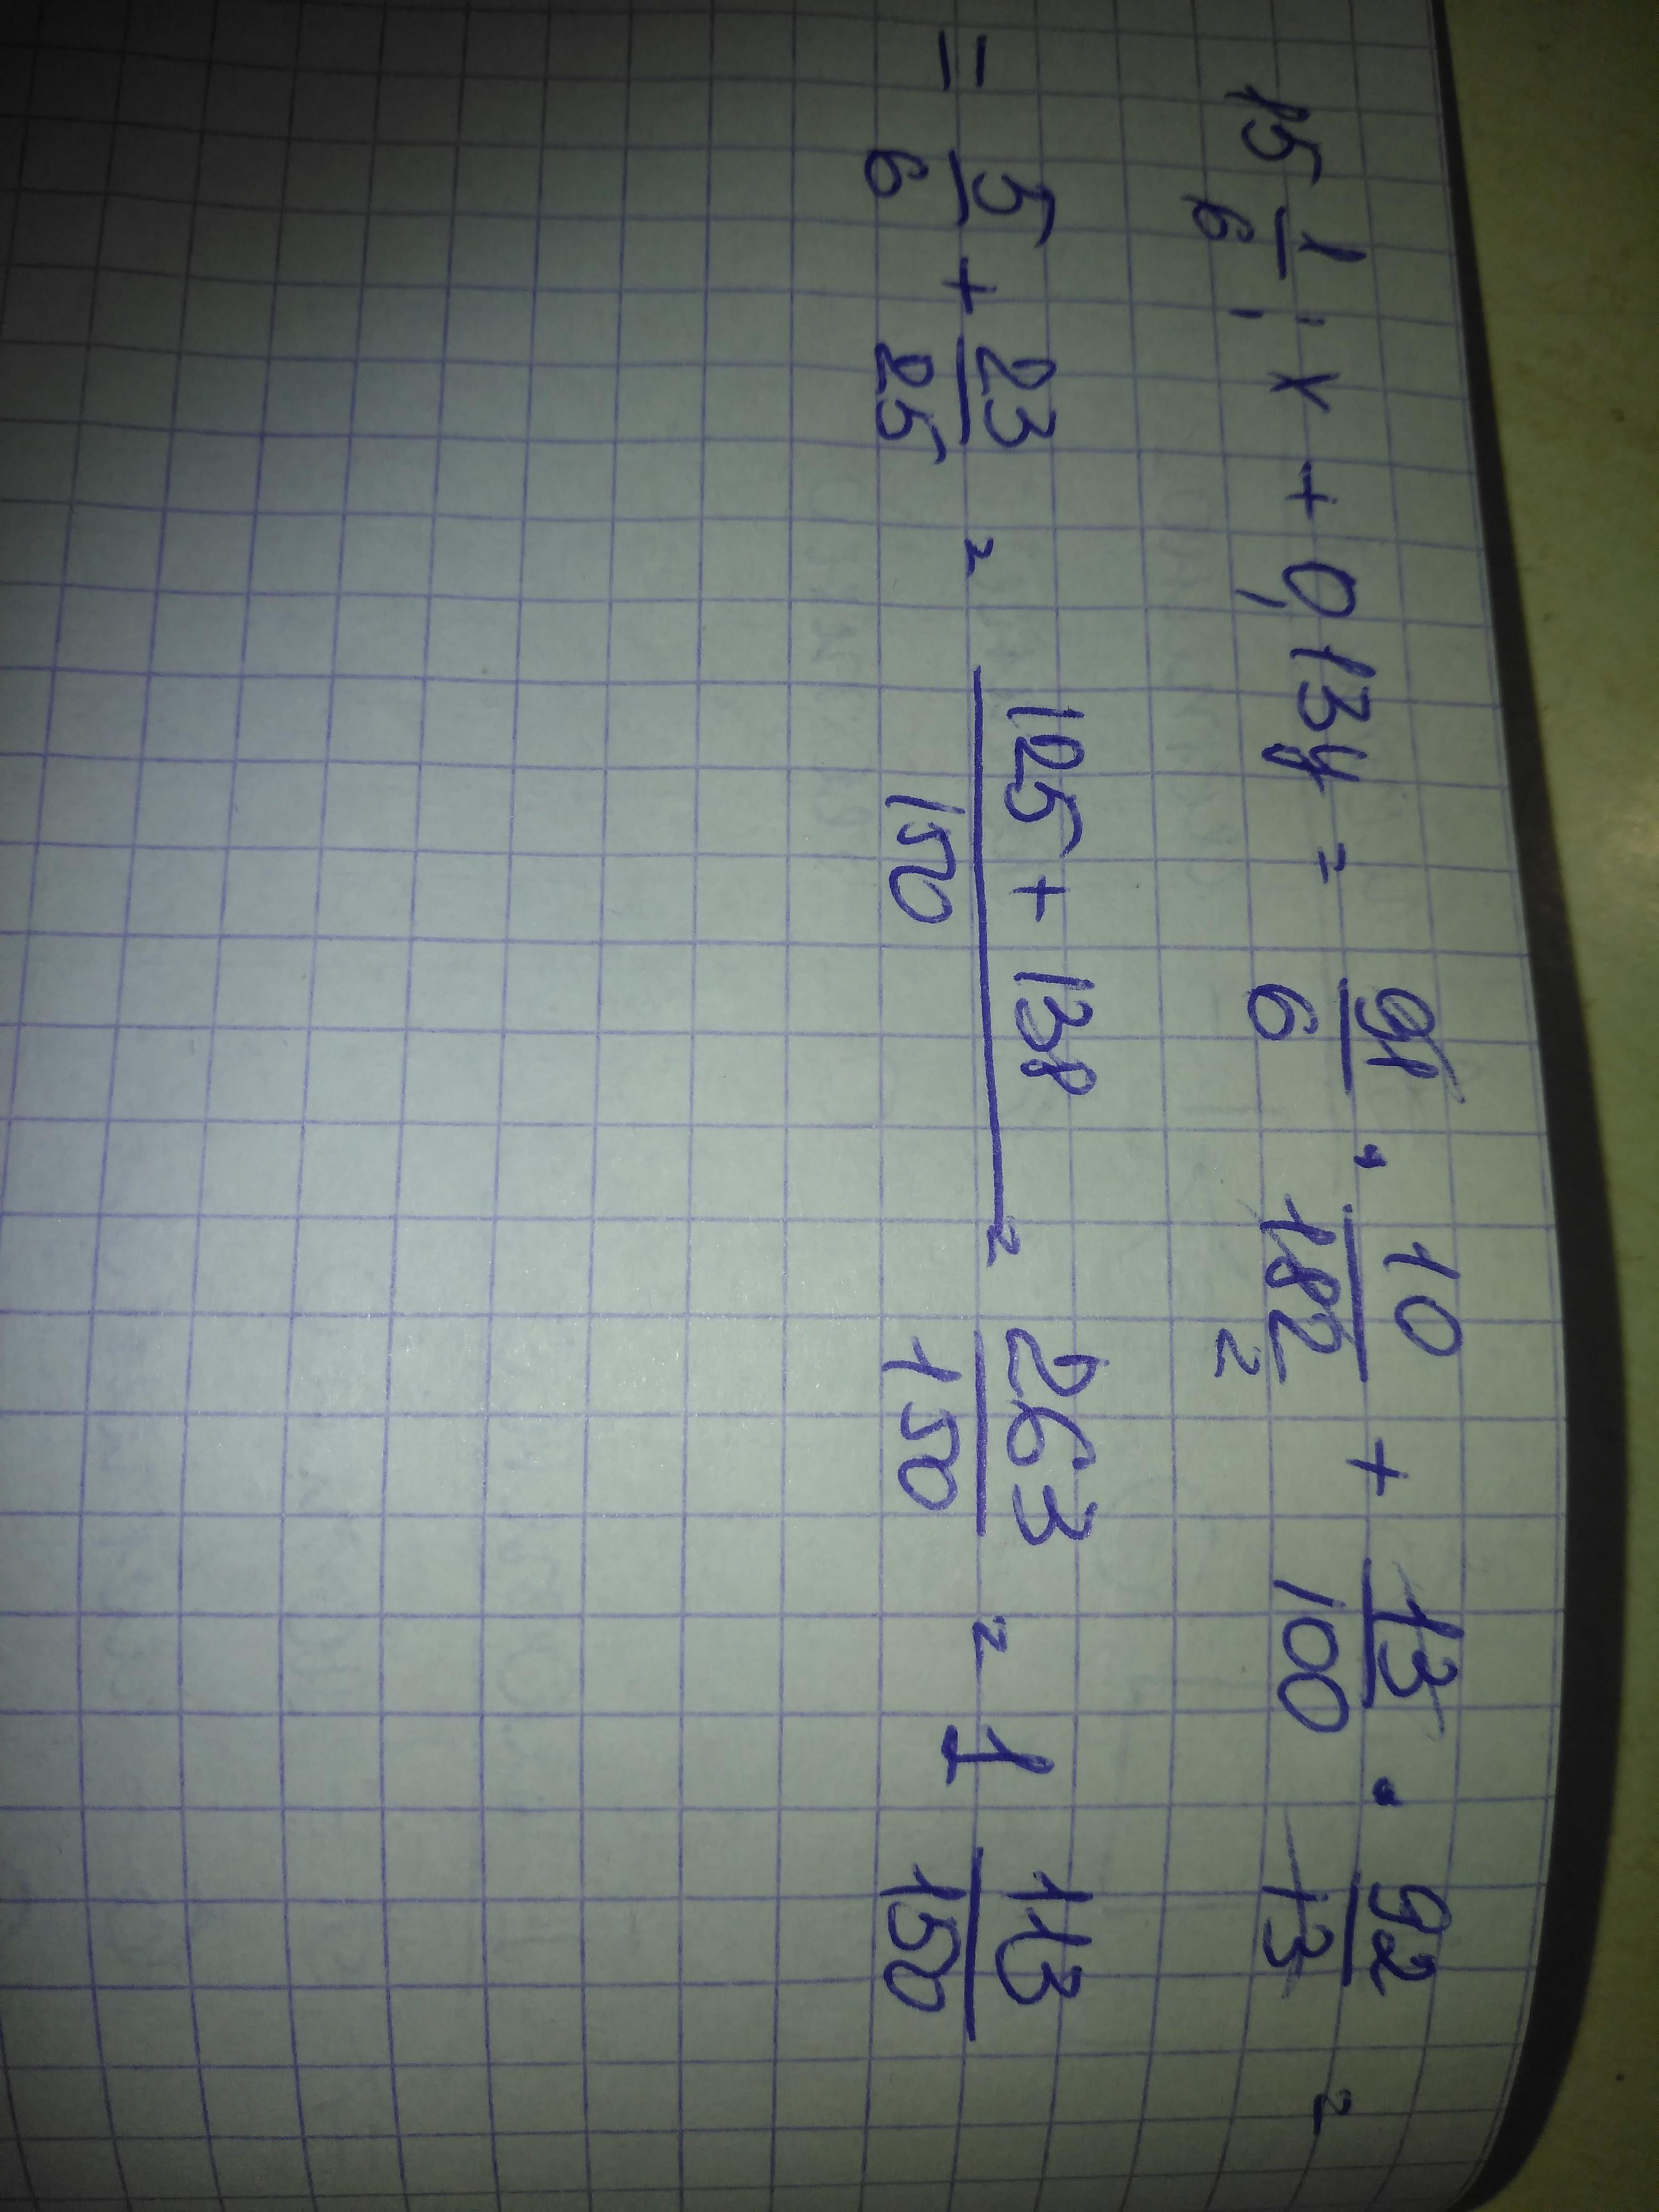 15 1/6 : x + 0,13y = 91/6 · 10/182 2 + 13/100 · 92/13 =
= 5/6 + 23/25 = 125 + 138/150 = 263/150 = 1 113/150